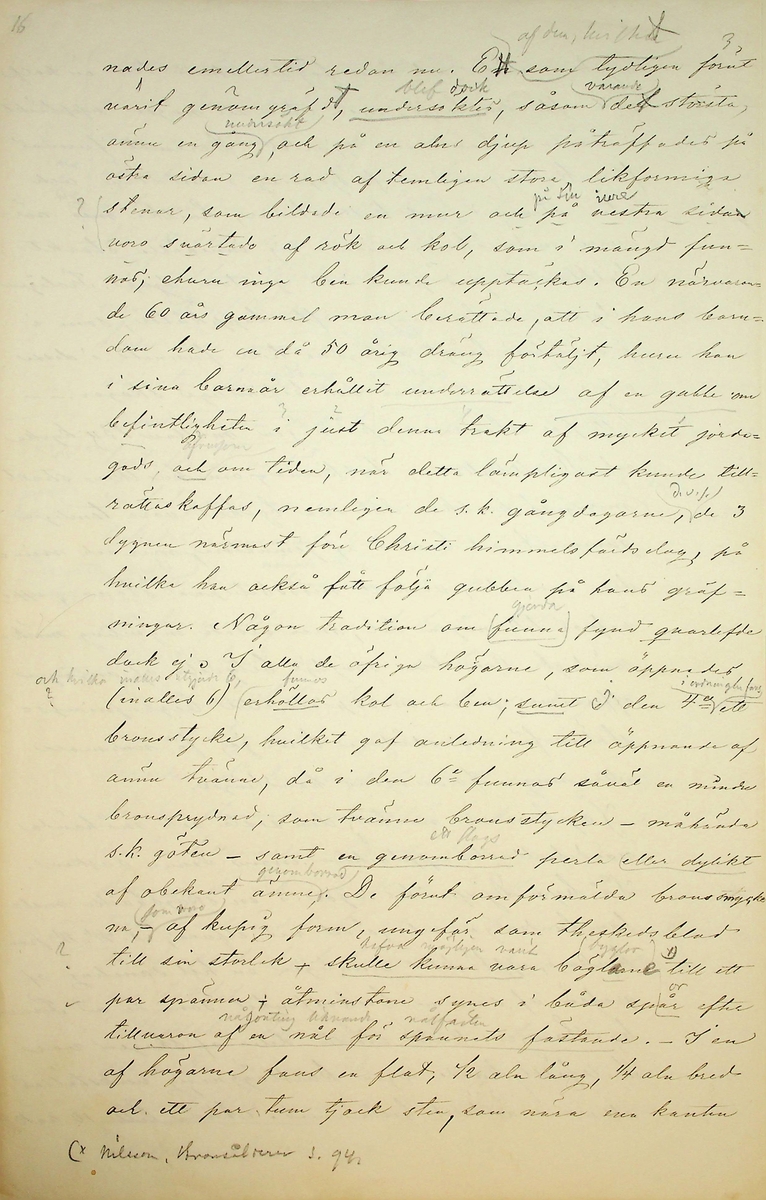 16
af den, hvilket
3
nades emellertid redan nu. Ett som tydligen förut
blef dock varande
varit genomgräfdt, undersöktes, såsom det största,
undersökt
ännu en gång, och på en alns djup påträffades på
östra sidan en rad af temligen stora, likformiga
på sin
? stenar, som bildade en mur och på vestra sidan
voro svärtade af rök och kol, som i mängd fun-
nos; ehuru inga ben kunde upptäckas. En närvaran-
de 60 års gammal man berättade, att i hans barn-
dom hade en då 50 årig dräng förtäljt, huru han
i sina barnaår erhållit underrättelse af en gubbe om
befintligheten i just denna trakt af mycket jorda-
gods, och om tiden, när detta lämpligast kunde till-
d.v.s.
rättaskaffas, nemligen de s.k. gångdagarne, de 3
dygnen närmast före Christi himmelsfärdsdag, på
hvilka han också fått följa gubben på hans gräf-
gjorda
ningar. Någon tradition om funna fynd qvarlefde
dock ej. I alla de öfriga högarne, som öppnades
och hvilka funnos
? (inalles 6) erhöllos kol och ben; samt i den 4:a ett
bronsstycke, hvilket gaf anledning till öppnande af
ännu tvänne, då i den 6:e funnos såväl en mindre
bronsprydnad, som tvänne bronsstycken – måhända
ett slags
s.k. göten – samt en genomborrad perla eller dylikt
genomborrad
af obekant ämne. De förut omförmälda bronssmycke
som voro
na, – af kupig form, ungefär som theskedsblad
hafva möjligen varit byglor
? till sin storlek – skulle kunna vara böglarne till ett
par spännen – åtminstone synes i båda spår efter
någonting liknande nålfästen
tillvaron af en nål för spännets fästande. – I en
af högarne fans en flat, 1/2 aln lång, 1/4 aln bred
och ett par tum tjock sten, som nära ena kanten
(x Nilsson, Bronsåldern s. 94.